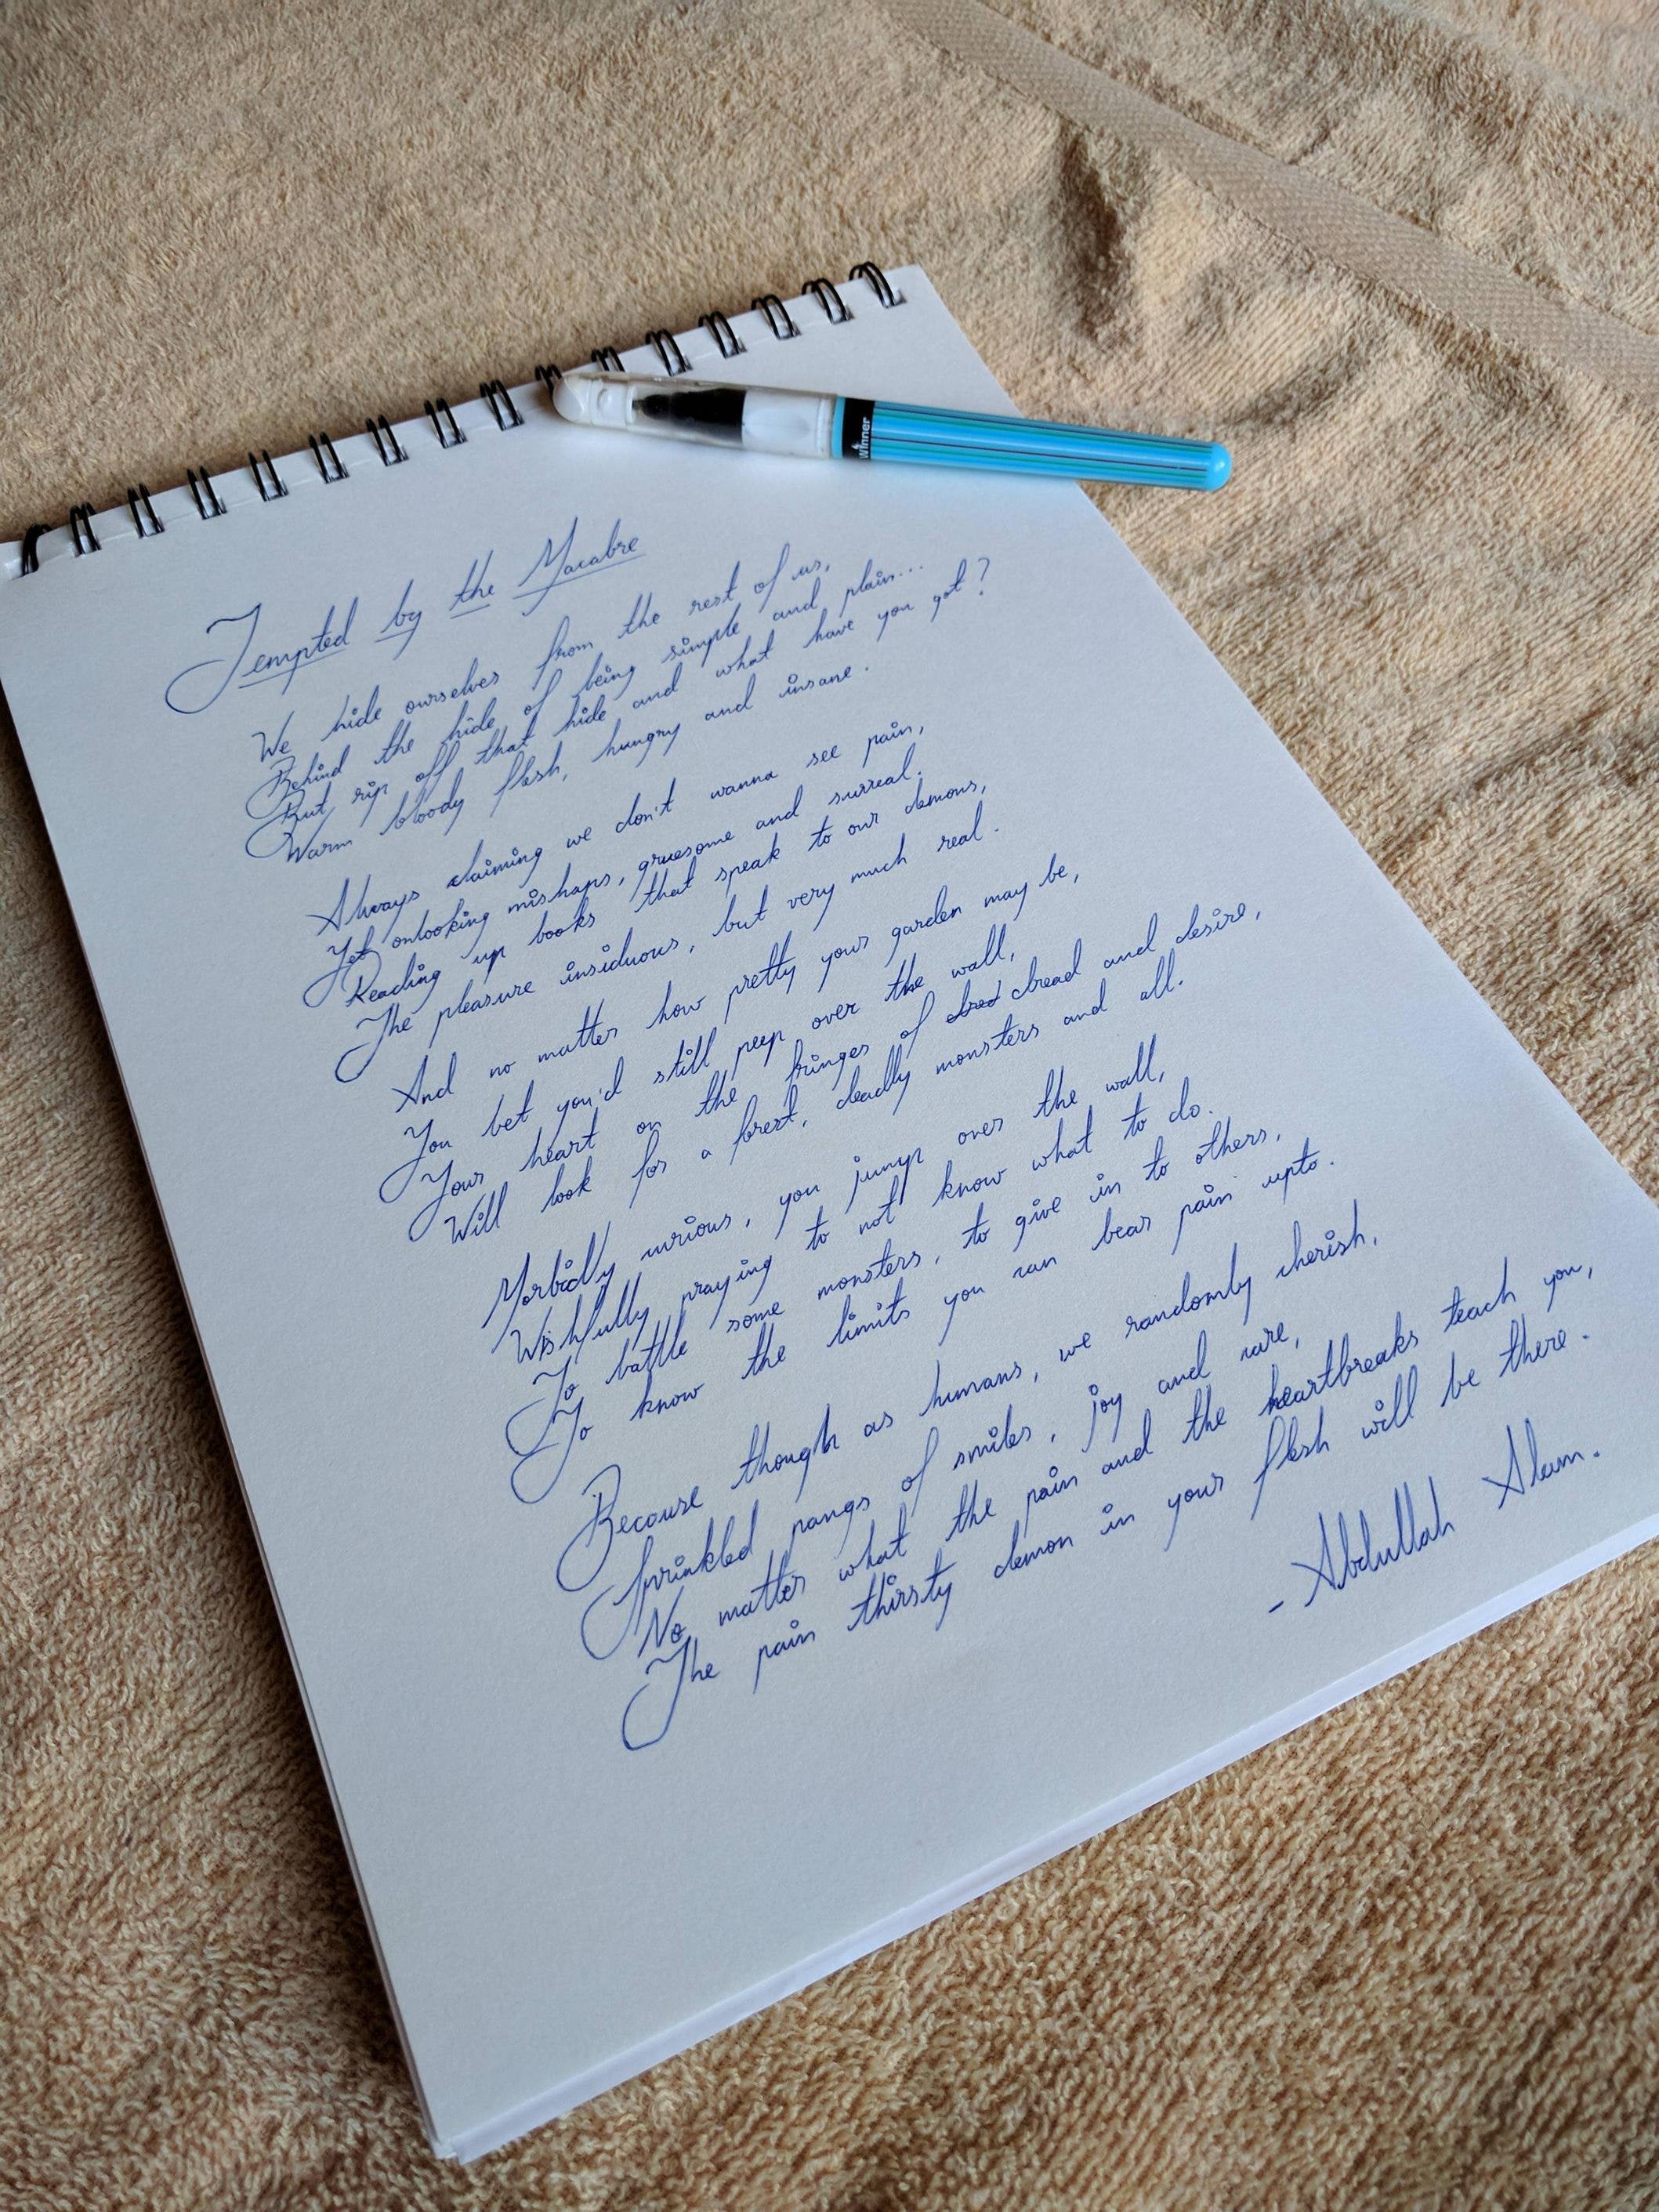 Winner
Tempted by the Macabre
We hide ourselves from the rest of us,
Behind the hide of being simple and plain...
But rip off that hide and what have you got?
Warm bloody flesh, hungry and insane.
Always claiming we don't wanna see pain,
Yet onlooking mishaps, gruesome and surreal.
Reading up books that speak to our demons,
The pleasure insiduous, but very much real.
And no matter how pretty your garden may be,
You bet you'd still peep over the wall,
Your heart on the fringes of dread and desire,
Will look for a forest, deadly monsters and all.
Morbidly curious, you jump over the wall,
Wishfully praying to not know what to do.
To battle some monsters, to give in to others,
To know the limits you can bear pain upto.
Because though as humans, we randomly cherish,
Sprinkled pangs of smiles, joy and care,
No matter what the pain and the heartbreaks teach you,
The pain thirsty demon in your flesh will be there.
- Abdullah Alam.